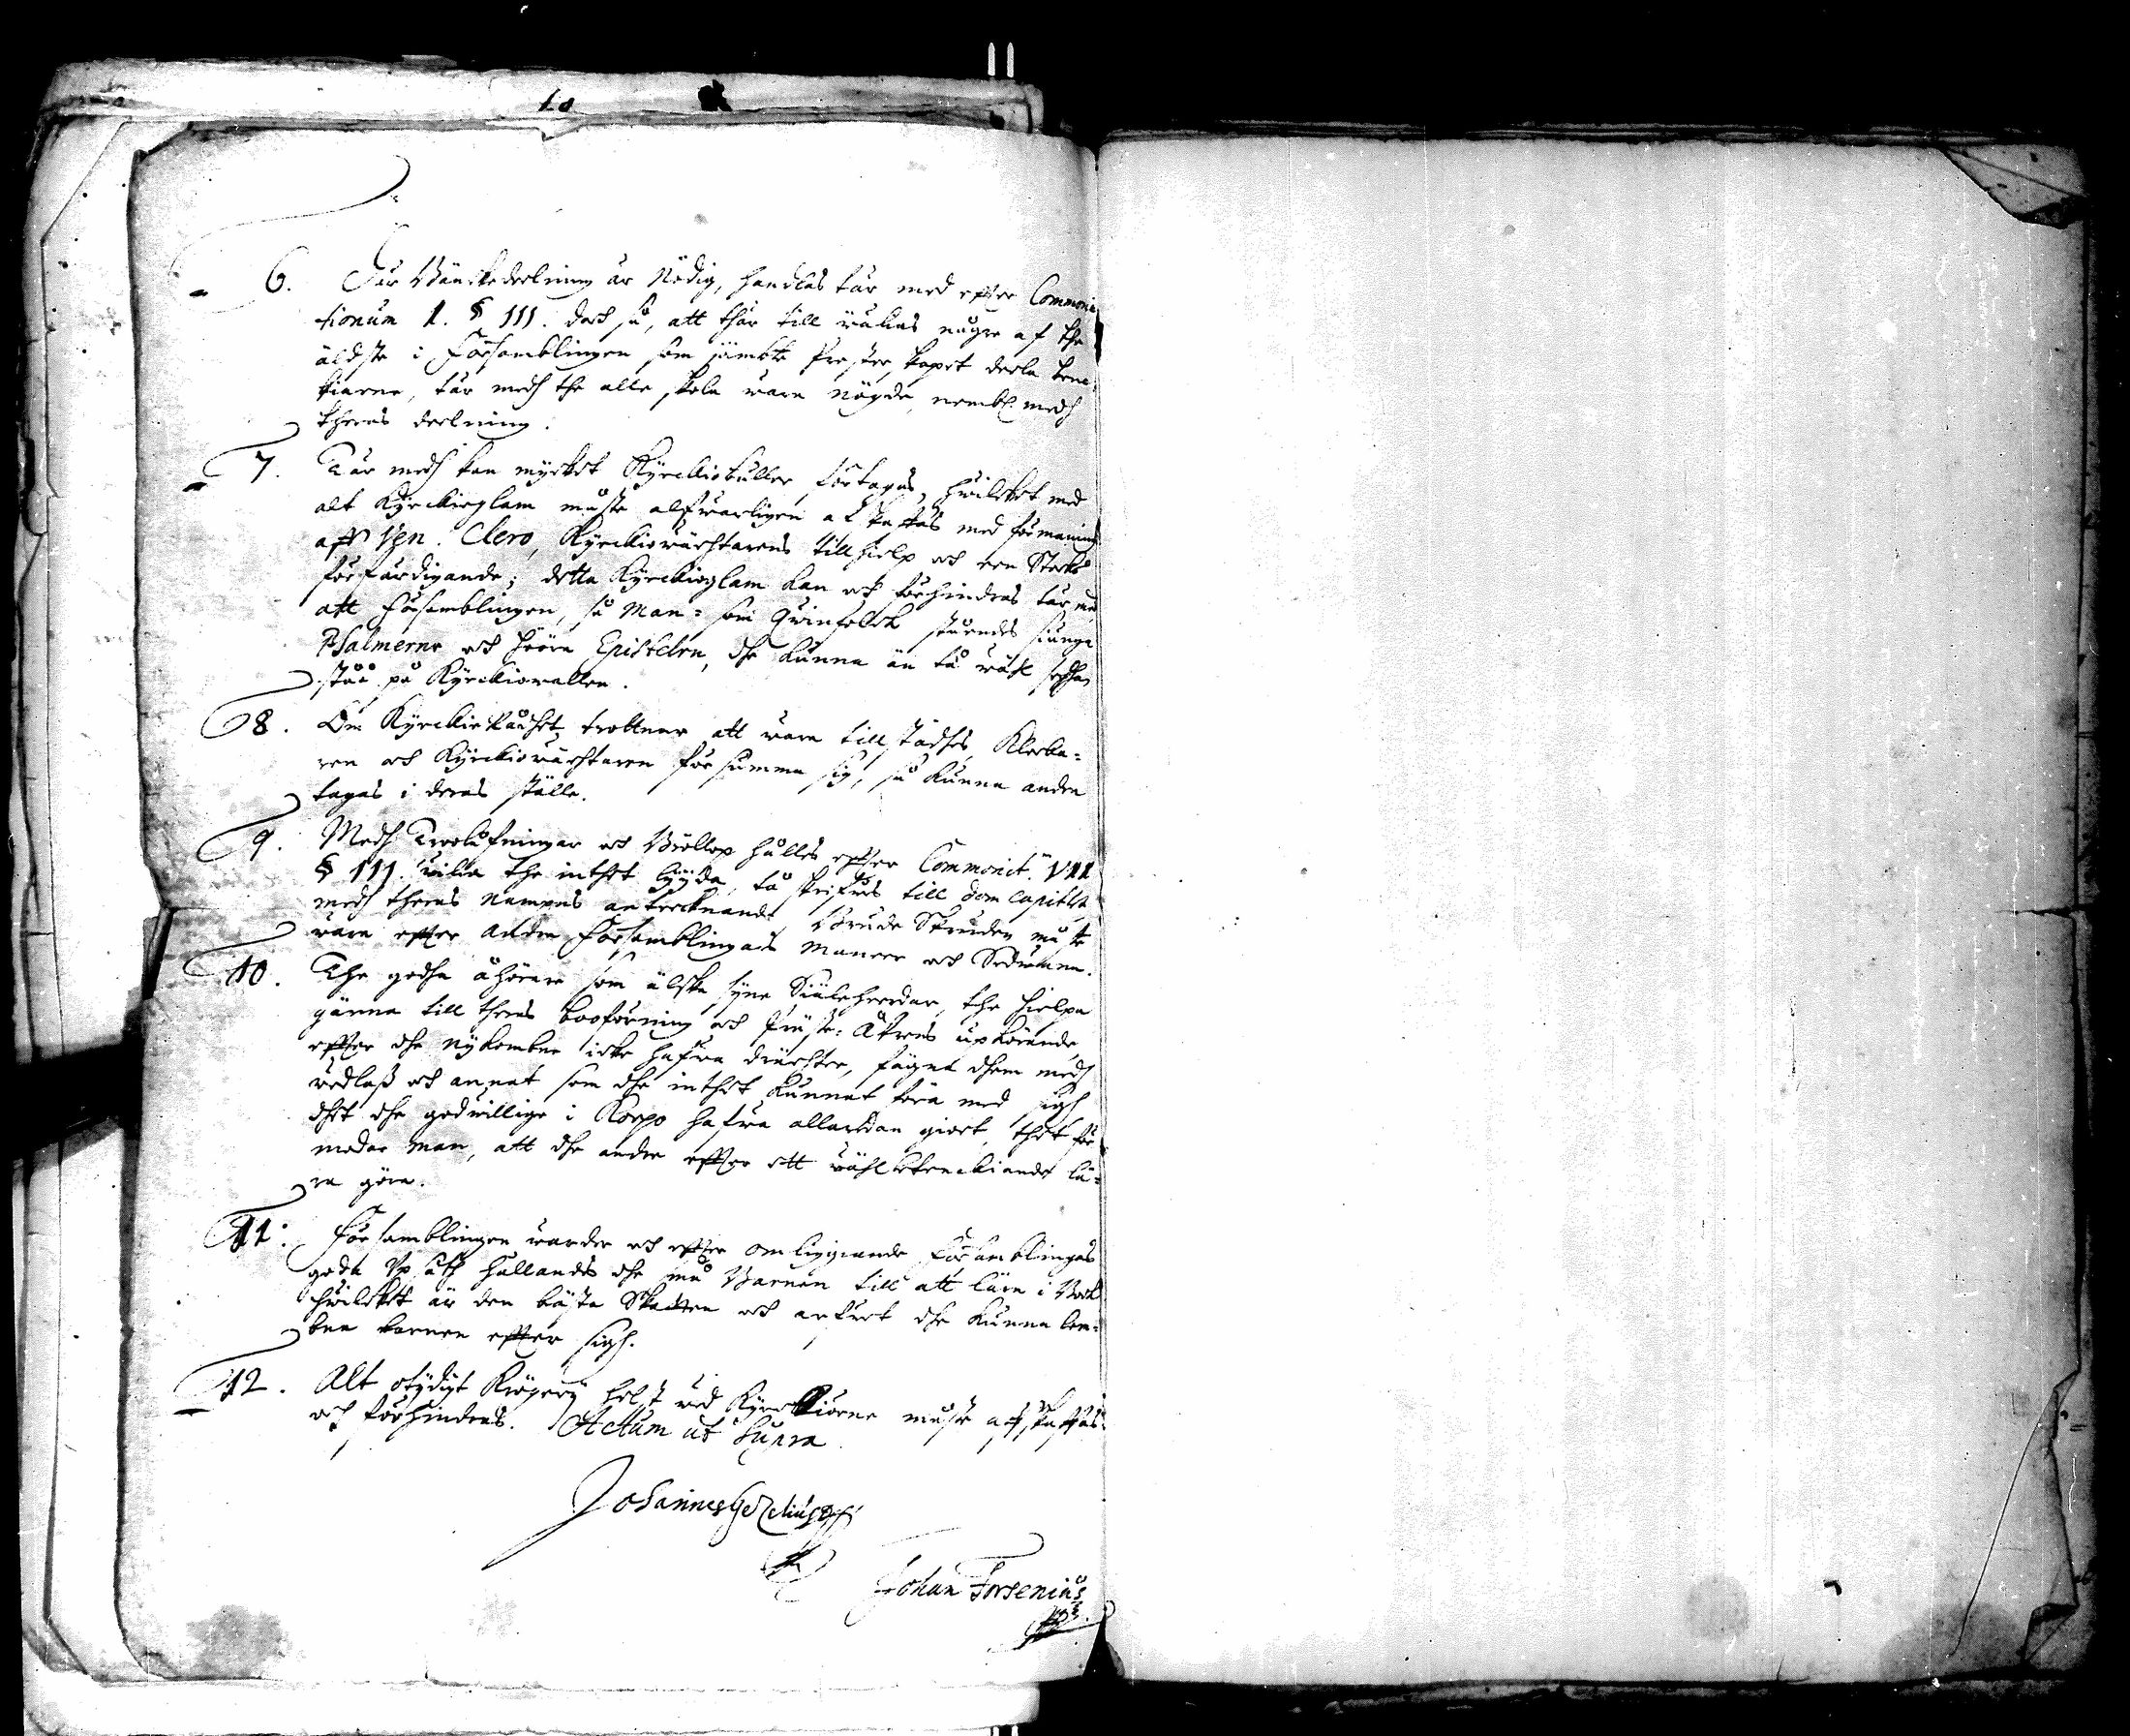 6. Där Bänckedeelning är Nödig, handlas tär med effter Commoni
tionum 1. § III. doch så, att thär till wällias någre af the
äldste i Församblingen som jämbte Presterskapet deela benc-
kiarne, tär medh the alle skola wara nögde, nembl. medh
theras deelning.
7. Tär medh kan myckit Kyrckiobuller förtagas, hwilcket med
alt Kyrckioglam måste alfwarligen afskaffas med förmaning
aff Ven. Clero, Kyrckiowächtarens tillhielp och een Stocks
förfärdigande; detta Kyrckioglam kan och förhindras tär med
att Församblingen, så Man- som Qwinfolck ståendes siunga
Psalmerne och höra Epistelen, the kunna än tå wähl sedhan
ståå på Kyrckiowallen.
8. Om Kyrckierådhet trottnar att wara tillstädhes, Klocka-
ren och Kyrckiowächtaren försumma sig, så kunna andra
tagas i deras ställe.
9. Medh Troolofningar och Bröllop hålles effter Commonit. VII
§ III. wilia the inthet lyyda, tå skrifwes till Dom Capitlet
medh theras Nampns antecknande. Brude Skruden måste
wara effter andra Församblingars maneer och Sedwanna.
10. The godha åhörare som älska syna Siäleheerdar, the hielpa
gärna till theras booförning och Präste-Åkrens upkörande,
effter dhe nykombne icke hafwa diurster, fägna dhem medh
wedlass och annat som dhe inthet kunnat föra med sigh
dhet dhe godwillige i Korpo hafwa allaredan giort, thet för
modar man, att dhe andra effter ett wähl betenckiande lä-
ra göra.
11: Församblingen warder och effter omliggiande Församblingas
goda Upsåth hållandes dhe små Barnen till att lära i Book
hwilcket är den bästa Skatten och arfwet dhe kunna lem-
bna barnen effter sigh.
12. Alt otydigt Krögery helst wed Kyrckiorne måste afskaffas
och förhindras. Actum ut Supra.
Johannes Gezelius
Johan Forsenius